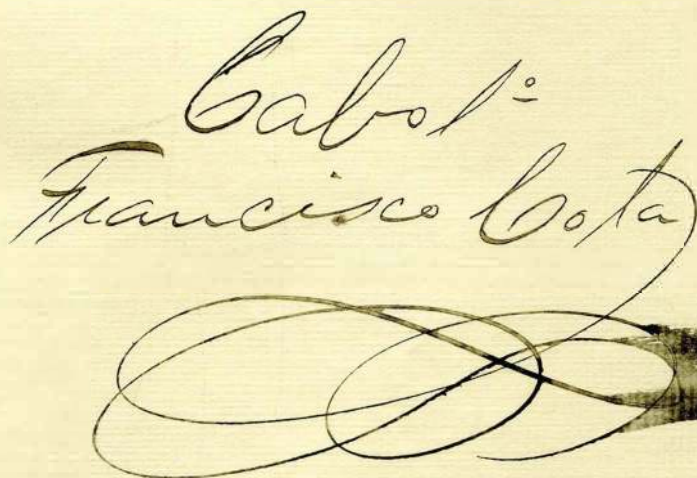 Cabo 1º
Francisco Cota